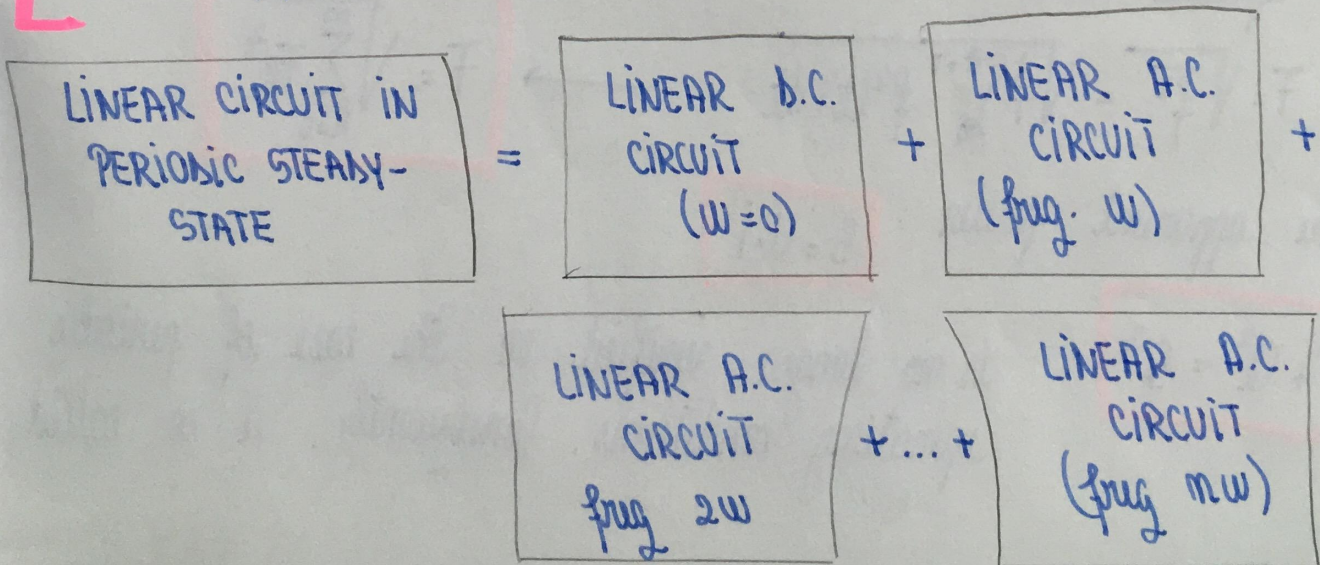 LINEAR CIRCUIT IN
PERIODIC STEADY-
STATE
=
LINEAR D.C.
CIRCUIT
(W=0)
+
LINEAR A.C.
CIRCUIT
(freq. W)
+
LINEAR A.C.
CIRCUIT
freq 2W
+...+
LINEAR A.C.
CIRCUIT
(freq nW)